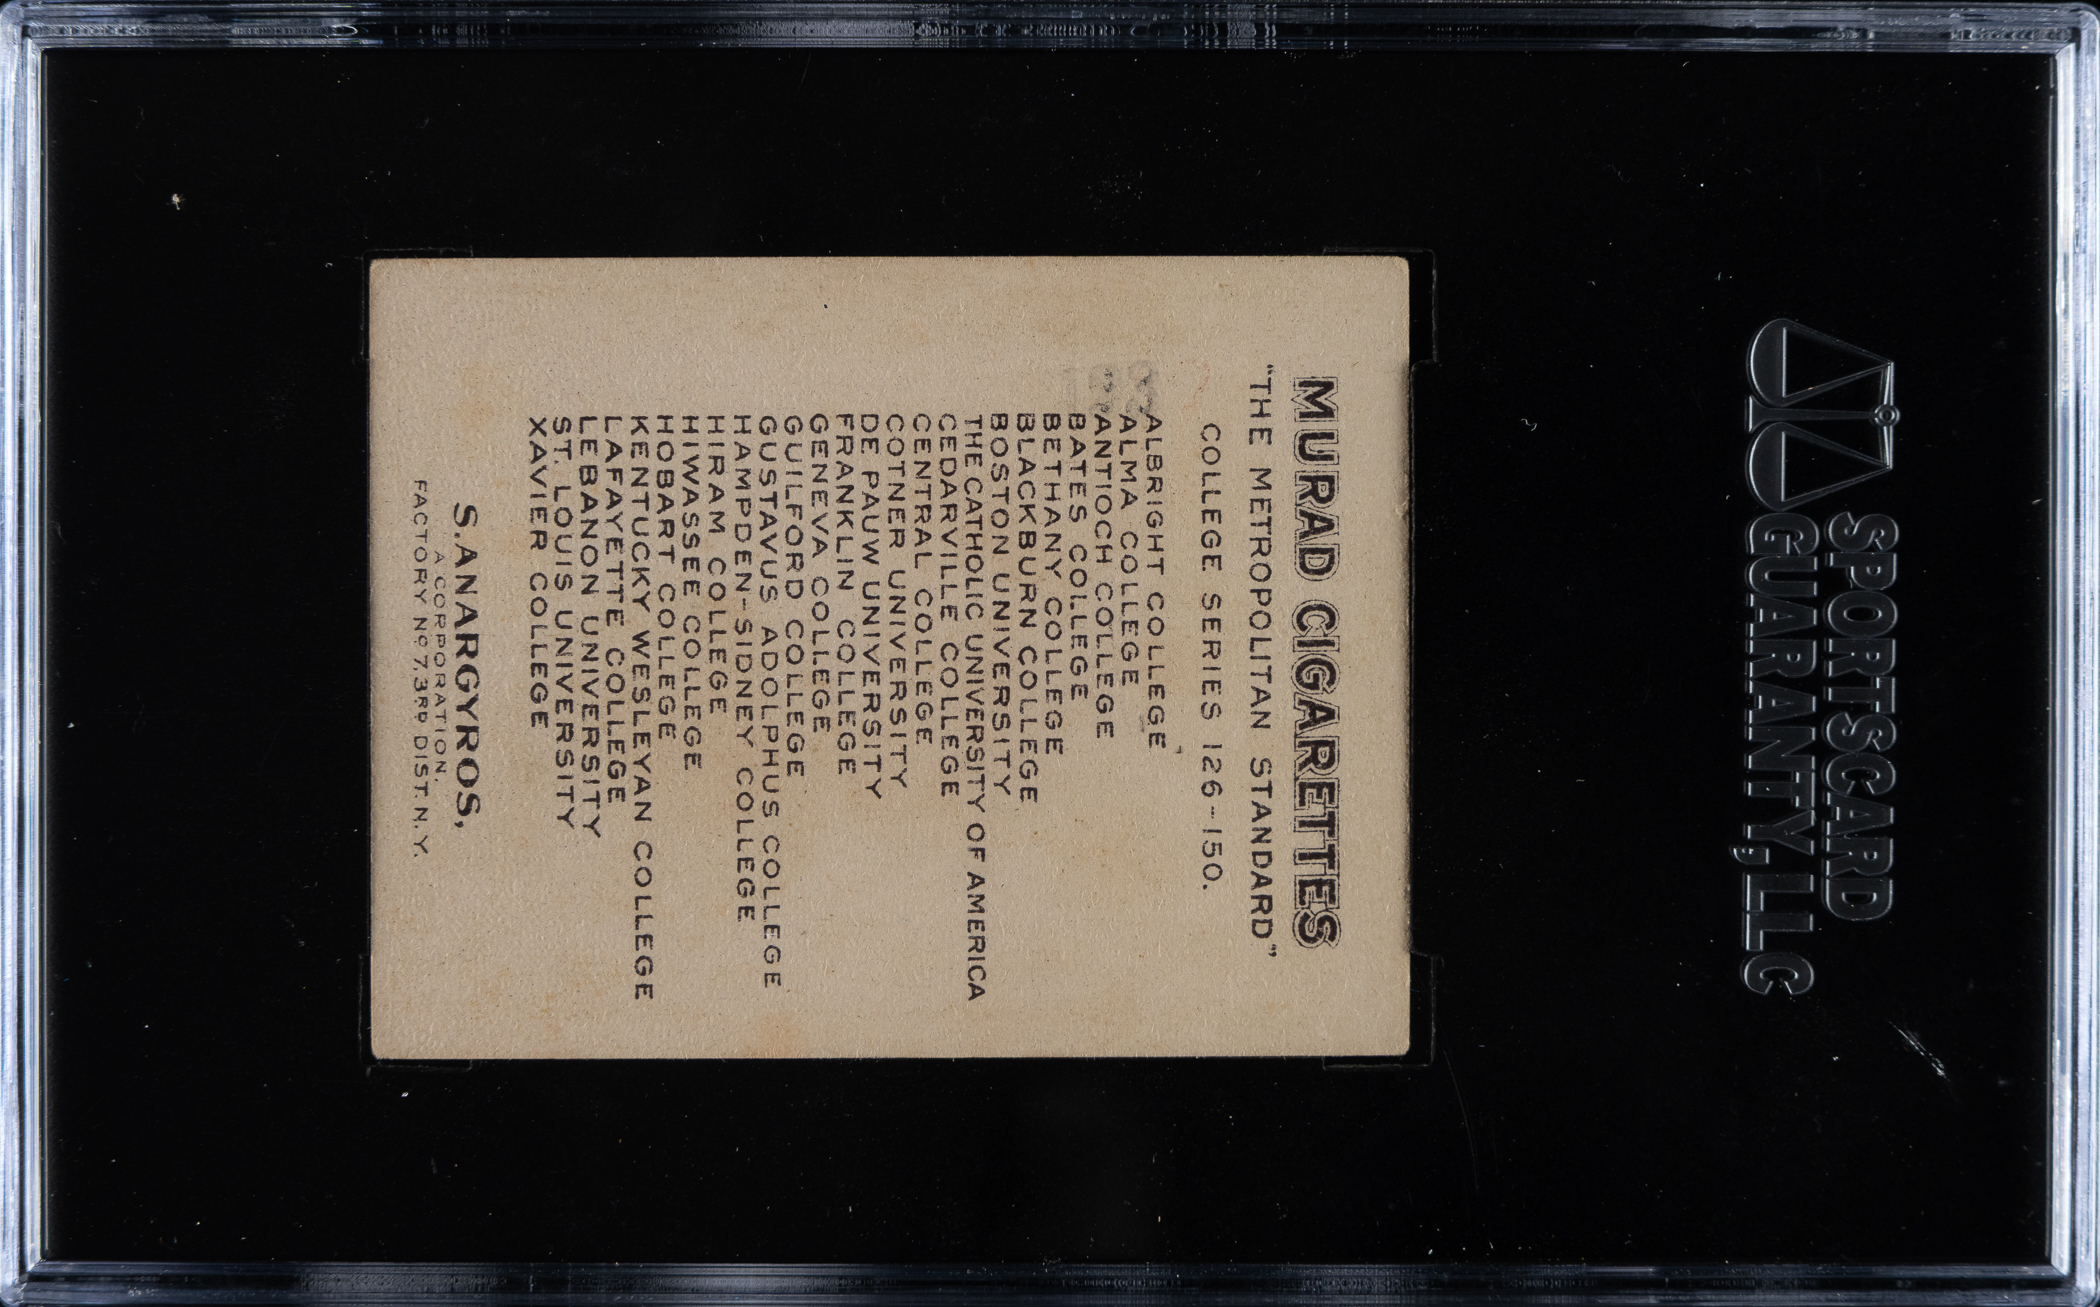 MURAD CIGARETTES
"THE METROPOLITAN STANDARD"
COLLEGE SERIES 126-150.
ALBRIGHT COLLEGE
ALMA COLLEGE
ANTIOCH COLLEGE
BATES COLLEGE
BETHANY COLLEGE
BLACKBURN COLLEGE
BOSTON UNIVERSITY
THE CATHOLIC UNIVERSITY OF AMERICA
CEDARVILLE COLLEGE
CENTRAL COLLEGE
COTNER UNIVERSITY
DE PAUW UNIVERSITY
FRANKLIN COLLEGE
GENEVA COLLEGE
GUILFORD COLLEGE
GUSTAVUS ADOLPHUS COLLEGE
HAMPDEN-SIDNEY COLLEGE
HIRAM COLLEGE
HIWASSEE COLLEGE
HOBART COLLEGE
KENTUCKY WESLEYAN COLLEGE
LAFAYETTE COLLEGE
LEBANON UNIVERSITY
ST. LOUIS UNIVERSITY
XAVIER COLLEGE
S. ANARGYROS,
A CORPORATION,
FACTORY Nº 7, 3RD DIST. N.Y.
SPORTSCARD
GUARANTY, LLC